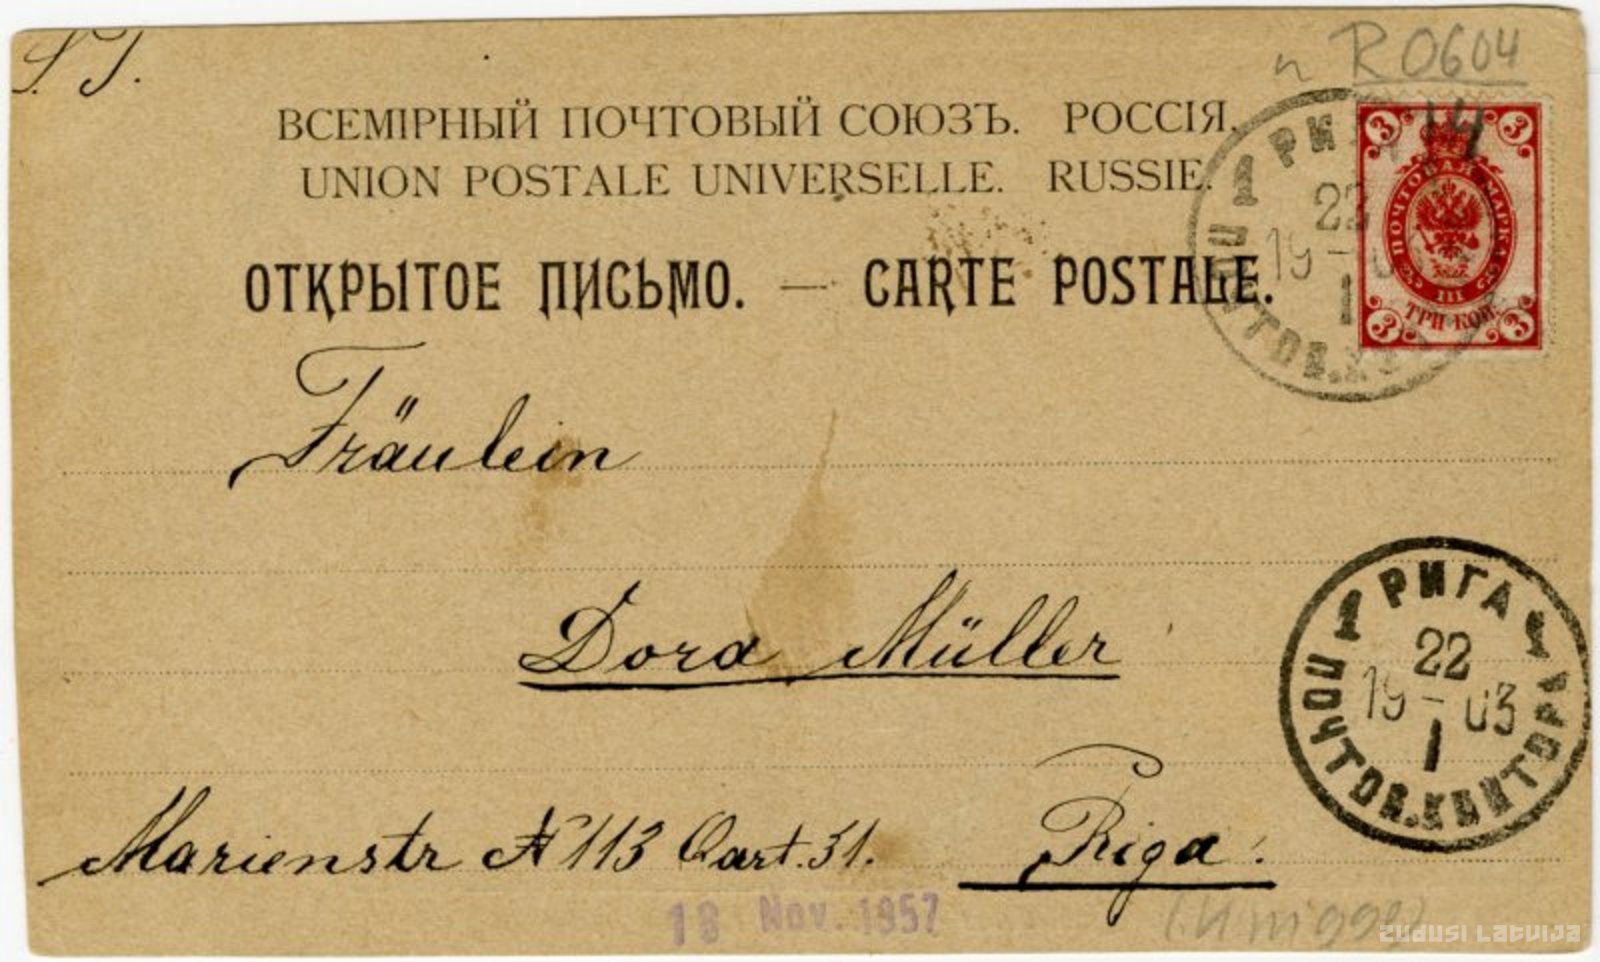 S. T.
R 0604
ВСЕМІРНЫЙ ПОЧТОВЫЙ СОЮЗЪ. РОССІЯ.
UNION POSTALE UNIVERSELLE. RUSSIE.
ОТКРЫТОЕ ПИСЬМО. — CARTE POSTALE.
3 3
ПОЧТОВАЯ МАРКА
III
ТРИ КОП.
3 3
1 РИГА
22
19-03
1
ПОЧТОВ. КОНТОРА
Fräulein
Dora Müller
Marienstr № 113 Quart. 31. Riga.
1 РИГА 1
22
19-03
1
ПОЧТОВ. КОНТОРА
18 Nov. 1957
ZUDUSI LATVIJA